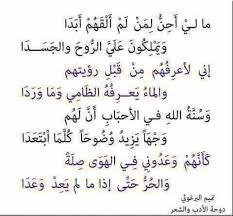 ما ليْ أَحِنُّ لِمَنْ لَمْ أَلْقَهُمْ أَبَدَا
وَيَمْلِكُونَ عَلَيَّ الرُّوحَ والجَسَدَا
إني لأعرِفُهُم مِنْ قَبْلِ رؤيتهم
والماءُ يَعرِفُهُ الظَّامِي وَمَا وَرَدَا
وَسُنَّةُ اللهِ في الأحبَابِ أَنَّ لَهُم
وَجْهَاً يَزِيدُ وُضُوحَاً كُلَّمَا ابْتَعَدَا
كَأَنَّهُمْ وَعَدُونِي فِي الهَوَى صِلَةً
وَالحُرُّ حَتَّى إذا ما لم يَعِدْ وَعَدَا
تميم البرغوثي
دوحة الأدب والشعر